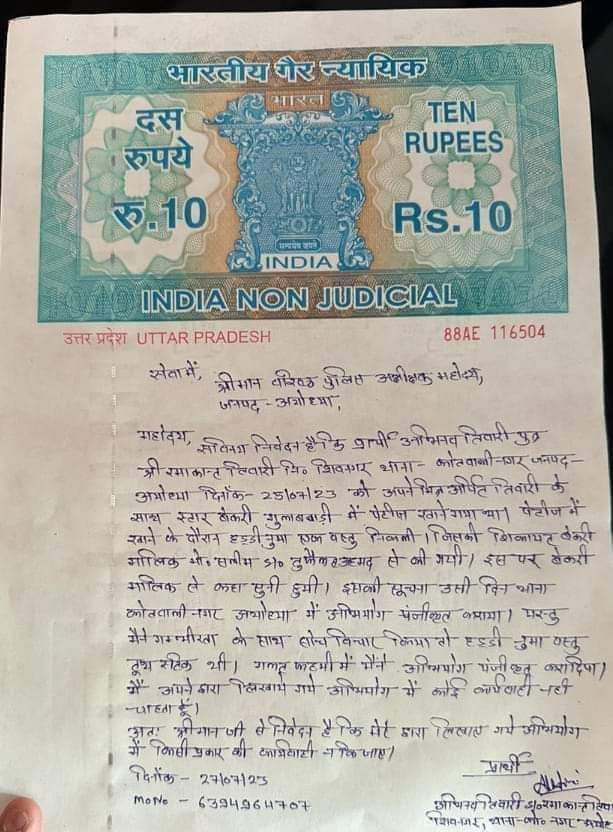 भारतीय गैर न्यायिक
भारत
दस
रुपये
रु.10
TEN
RUPEES
Rs.10
सत्यमेव जयते
INDIA
INDIA NON JUDICIAL
उत्तर प्रदेश UTTAR PRADESH
88AE 116504
सेवा में,
श्रीमान वरिष्ठ पुलिस अधीक्षक महोदय,
जनपद - अयोध्या,
महोदय,
सविनय निवेदन है कि प्रार्थी अभिनव तिवारी पुत्र
श्री रमाकान्त तिवारी नि० शिवनगर थाना - कोतवाली नगर जनपद -
अयोध्या दिनांक - 25/07/23 को अपने मित्र अर्पित तिवारी के
साथ स्टार बेकरी गुलाबबाड़ी में पेटीज खाने गया था। पेटीज में
खाने के दौरान हड्डी नुमा एक वस्तु निकली। जिसकी शिकायत बेकरी
मालिक मो० सलीम s/o तुफैल अहमद से की गयी। इस पर बेकरी
मालिक से कहा सुनी हुयी। इसकी सूचना उसी दिन थाना
कोतवाली नगर अयोध्या में अभियोग पंजीकृत कराया। परन्तु
मैने गम्भीरता के साथ सोच विचार किया तो हड्डी नुमा वस्तु
टूथ स्टिक थी। गलत फहमी में मैने अभियोग पंजीकृत करा दिया।
मैं अपने द्वारा लिखाये गये अभियोग में कोई कार्यवाही नही
चाहता हूँ।
अतः श्रीमान जी से निवेदन है कि मेरे द्वारा लिखाए गये अभियोग
में किसी प्रकार की कार्यवाही न कि जाए।
दिनांक - 27/07/23
प्रार्थी
MoNo - 6394964707
अभिनव तिवारी s/o रमाकान्त तिवा
शिवनगर, थाना - को० नगर